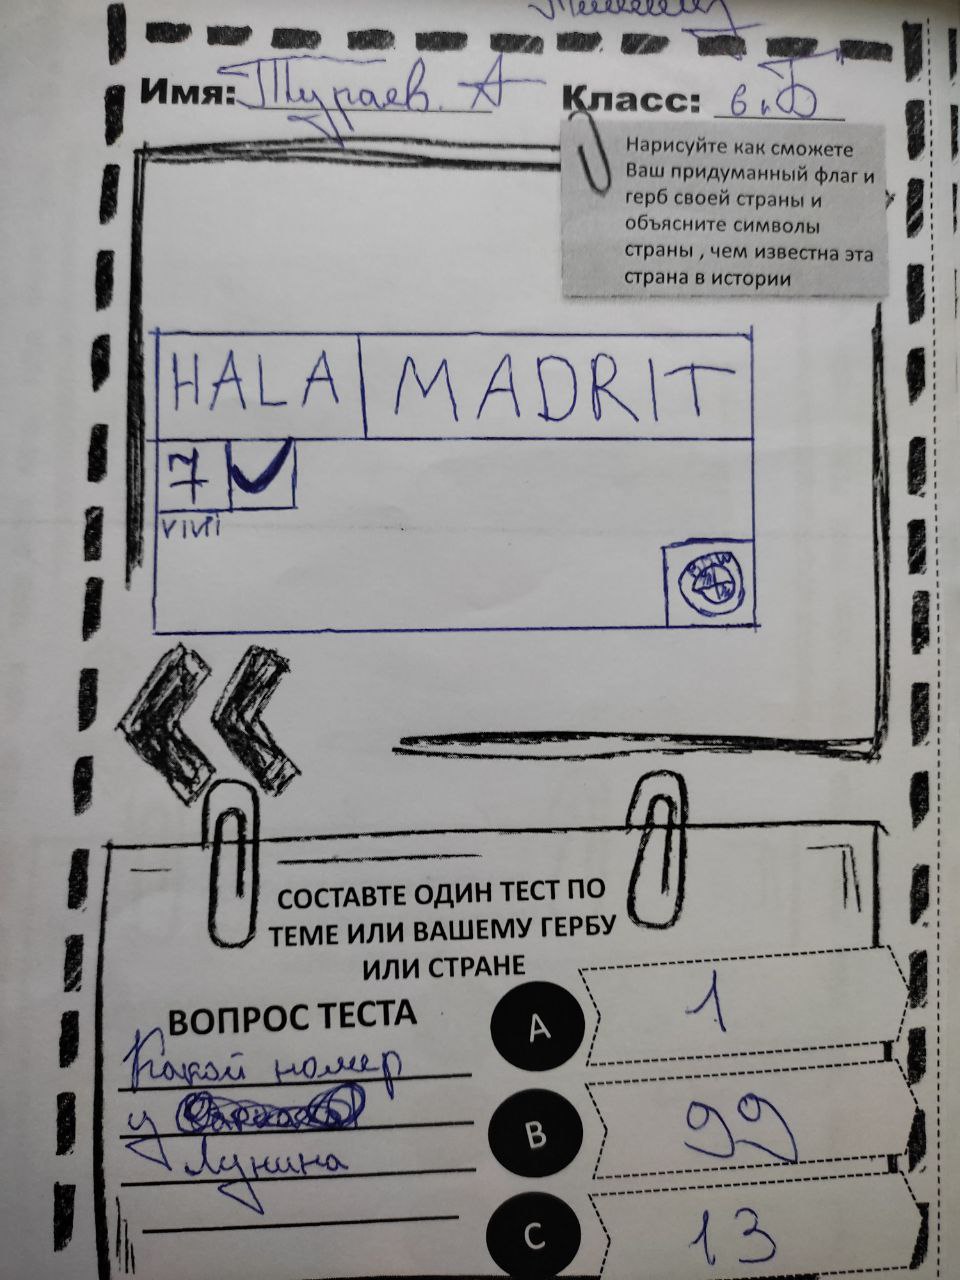 Имя: Тураев. А Класс: 6 "Б"
Нарисуйте как сможете
Ваш придуманный флаг и
герб своей страны и
объясните символы
страны , чем известна эта
страна в истории
HALA MADRIT
7
BMW
СОСТАВТЕ ОДИН ТЕСТ ПО
ТЕМЕ ИЛИ ВАШЕМУ ГЕРБУ
ИЛИ СТРАНЕ
ВОПРОС ТЕСТА
Какой номер
у
Лунина
A 1
B 99
C 13